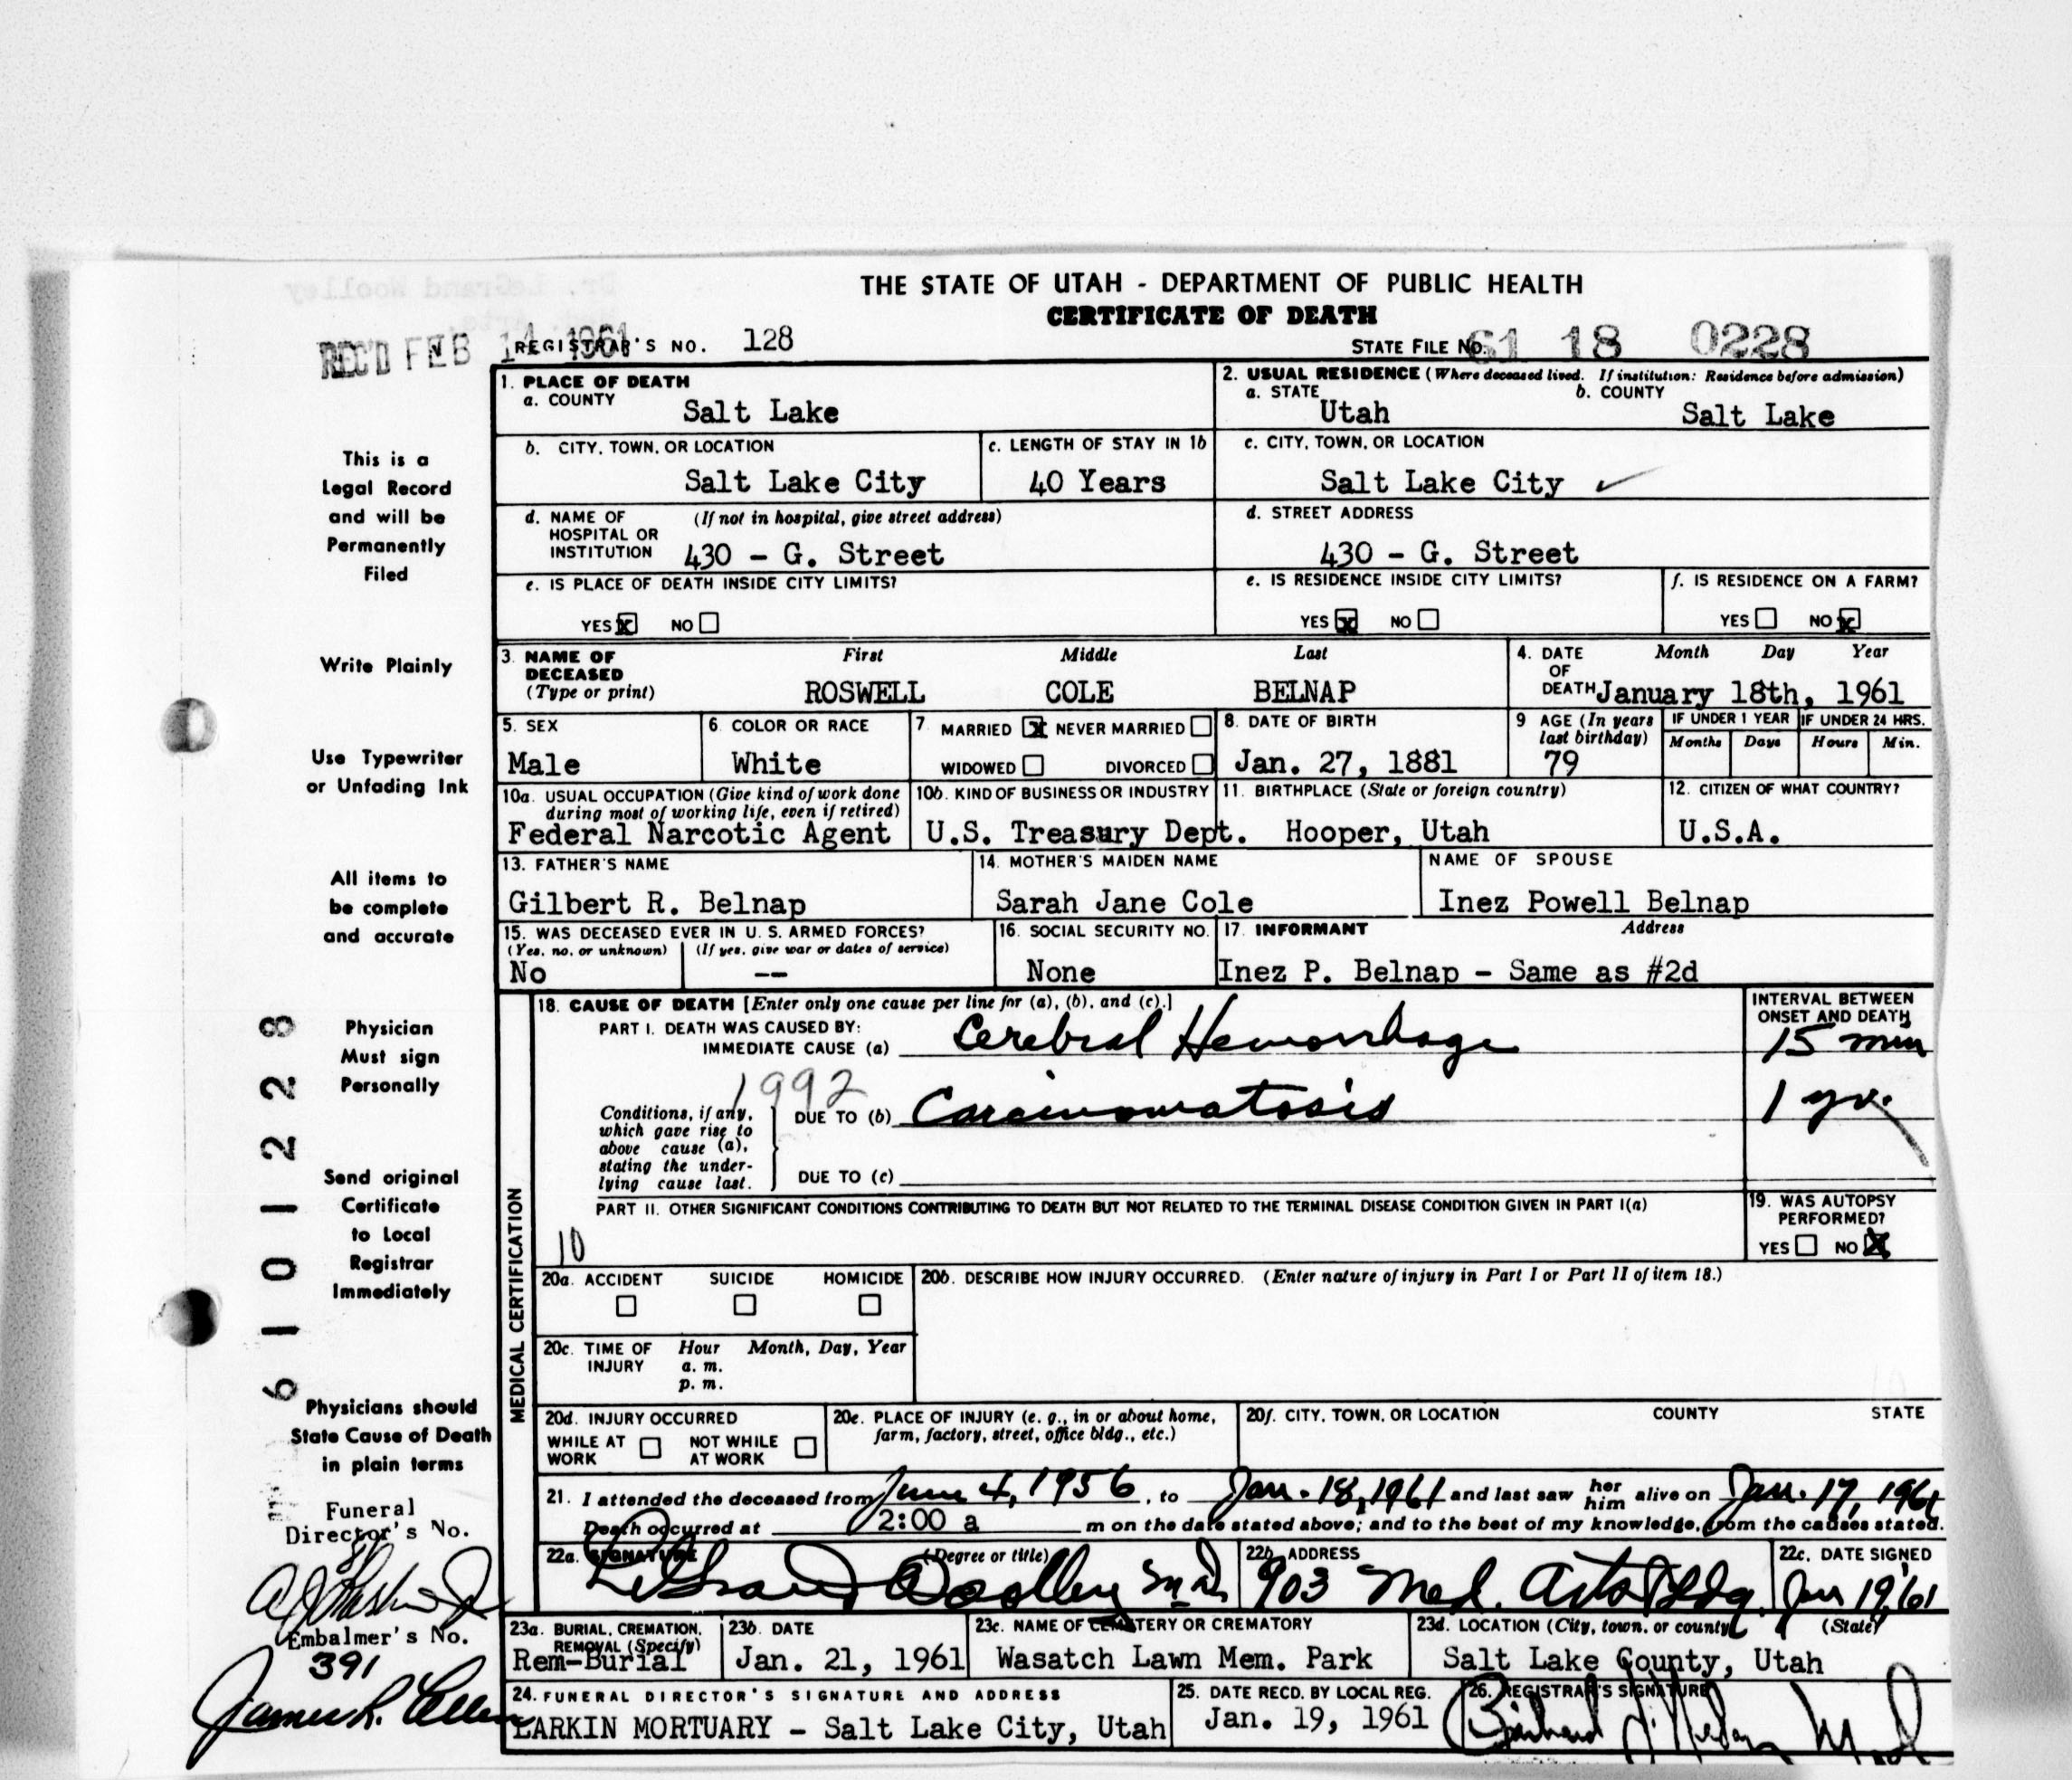 THE STATE OF UTAH - DEPARTMENT OF PUBLIC HEALTH
CERTIFICATE OF DEATH
REC'D FEB 14 1961 REGISTRAR'S NO. 128 STATE FILE NO. 61 18 0228
1. PLACE OF DEATH
a. COUNTY Salt Lake
2. USUAL RESIDENCE (Where deceased lived. If institution: Residence before admission)
a. STATE Utah b. COUNTY Salt Lake
b. CITY, TOWN, OR LOCATION Salt Lake City
c. LENGTH OF STAY IN 1b 40 Years
c. CITY, TOWN, OR LOCATION Salt Lake City
d. NAME OF HOSPITAL OR INSTITUTION (If not in hospital, give street address) 430 - G. Street
d. STREET ADDRESS 430 - G. Street
e. IS PLACE OF DEATH INSIDE CITY LIMITS?
YES X NO
e. IS RESIDENCE INSIDE CITY LIMITS?
YES X NO
f. IS RESIDENCE ON A FARM?
YES NO X
3. NAME OF DECEASED (Type or print) First Middle Last
ROSWELL COLE BELNAP
4. DATE OF DEATH Month Day Year
January 18th, 1961
5. SEX Male
6. COLOR OR RACE White
7 MARRIED X NEVER MARRIED
WIDOWED DIVORCED
8. DATE OF BIRTH Jan. 27, 1881
9 AGE (In years last birthday) 79
IF UNDER 1 YEAR Months Days
IF UNDER 24 HRS. Hours Min.
10a. USUAL OCCUPATION (Give kind of work done during most of working life, even if retired)
Federal Narcotic Agent
10b. KIND OF BUSINESS OR INDUSTRY U.S. Treasury Dept.
11. BIRTHPLACE (State or foreign country) Hooper, Utah
12. CITIZEN OF WHAT COUNTRY? U.S.A.
13. FATHER'S NAME Gilbert R. Belnap
14. MOTHER'S MAIDEN NAME Sarah Jane Cole
NAME OF SPOUSE Inez Powell Belnap
15. WAS DECEASED EVER IN U. S. ARMED FORCES?
(Yes, no, or unknown) (If yes, give war or dates of service)
No --
16. SOCIAL SECURITY NO. None
17. INFORMANT Address
Inez P. Belnap - Same as #2d
MEDICAL CERTIFICATION
18. CAUSE OF DEATH [Enter only one cause per line for (a), (b), and (c).]
INTERVAL BETWEEN ONSET AND DEATH
PART I. DEATH WAS CAUSED BY:
IMMEDIATE CAUSE (a) Cerebral Hemorrhage 15 min
1992
Conditions, if any, which gave rise to above cause (a), stating the underlying cause last.
DUE TO (b) Carcinomatosis 1 yr.
DUE TO (c)
PART II. OTHER SIGNIFICANT CONDITIONS CONTRIBUTING TO DEATH BUT NOT RELATED TO THE TERMINAL DISEASE CONDITION GIVEN IN PART I(a)
10
19. WAS AUTOPSY PERFORMED?
YES NO X
20a. ACCIDENT SUICIDE HOMICIDE
20b. DESCRIBE HOW INJURY OCCURRED. (Enter nature of injury in Part I or Part II of item 18.)
20c. TIME OF INJURY Hour Month, Day, Year
a. m.
p. m.
20d. INJURY OCCURRED
WHILE AT WORK NOT WHILE AT WORK
20e. PLACE OF INJURY (e. g., in or about home, farm, factory, street, office bldg., etc.)
20f. CITY, TOWN, OR LOCATION COUNTY STATE
21. I attended the deceased from June 4, 1956, to Jan. 18, 1961 and last saw her him alive on Jan. 17, 1961
Death occurred at 2:00 a m on the date stated above; and to the best of my knowledge, from the causes stated.
22a. SIGNATURE (Degree or title)
LeGrand Woolley M.D.
22b. ADDRESS 903 Med. Arts Bldg.
22c. DATE SIGNED Jan 19, 61
23a. BURIAL, CREMATION, REMOVAL (Specify) Rem-Burial
23b. DATE Jan. 21, 1961
23c. NAME OF CEMETERY OR CREMATORY Wasatch Lawn Mem. Park
23d. LOCATION (City, town, or county) (State)
Salt Lake County, Utah
24. FUNERAL DIRECTOR'S SIGNATURE AND ADDRESS
LARKIN MORTUARY - Salt Lake City, Utah
25. DATE RECD. BY LOCAL REG. Jan. 19, 1961
26. REGISTRAR'S SIGNATURE
This is a
Legal Record
and will be
Permanently
Filed
Write Plainly
Use Typewriter
or Unfading Ink
All items to
be complete
and accurate
Physician
Must sign
Personally
Send original
Certificate
to Local
Registrar
Immediately
Physicians should
State Cause of Death
in plain terms
Funeral
Director's No.
Embalmer's No.
391
6 1 0 1 2 2 8